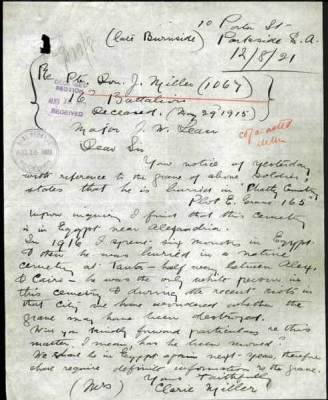 10 Porter St
(late Burnside) Parkside S.A.
12/8/21
Re Pte. Don. J. Miller (1067)
16 Battalion
Deceased. (May 2nd 1915)
RECEIVED
Major J. M. Lean
Dear Sir
Your notice of yesterday
with reference to the grave of above soldier,
states that he is buried in Chatby Cemetery
Plot E. Grave 165
upon inquiry I find that this cemetery
is in Egypt near Alexandria.
In 1916 I spent six months in Egypt
& then he was buried in a native
cemetery at Tanta - half way between Alex.
& Cairo - he was the only white person in
this cemetery & during the recent riots in
that city we have wondered whether the
grave may have been destroyed.
Will you kindly forward particulars re this
matter, I mean, has he been moved?
We shall be in Egypt again next year, therefore
shall require definite information re the grave.
Yours faithfully
(Mrs) Clarie Miller